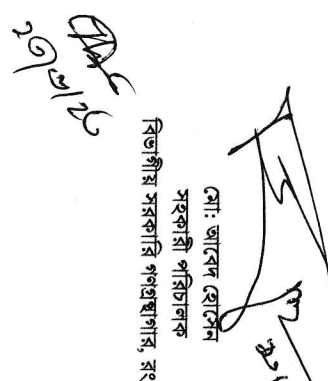 মো: আবেদ হোসেন
সহকারী পরিচালক
বিভাগীয় সরকারি গণগ্রন্থাগার, রং